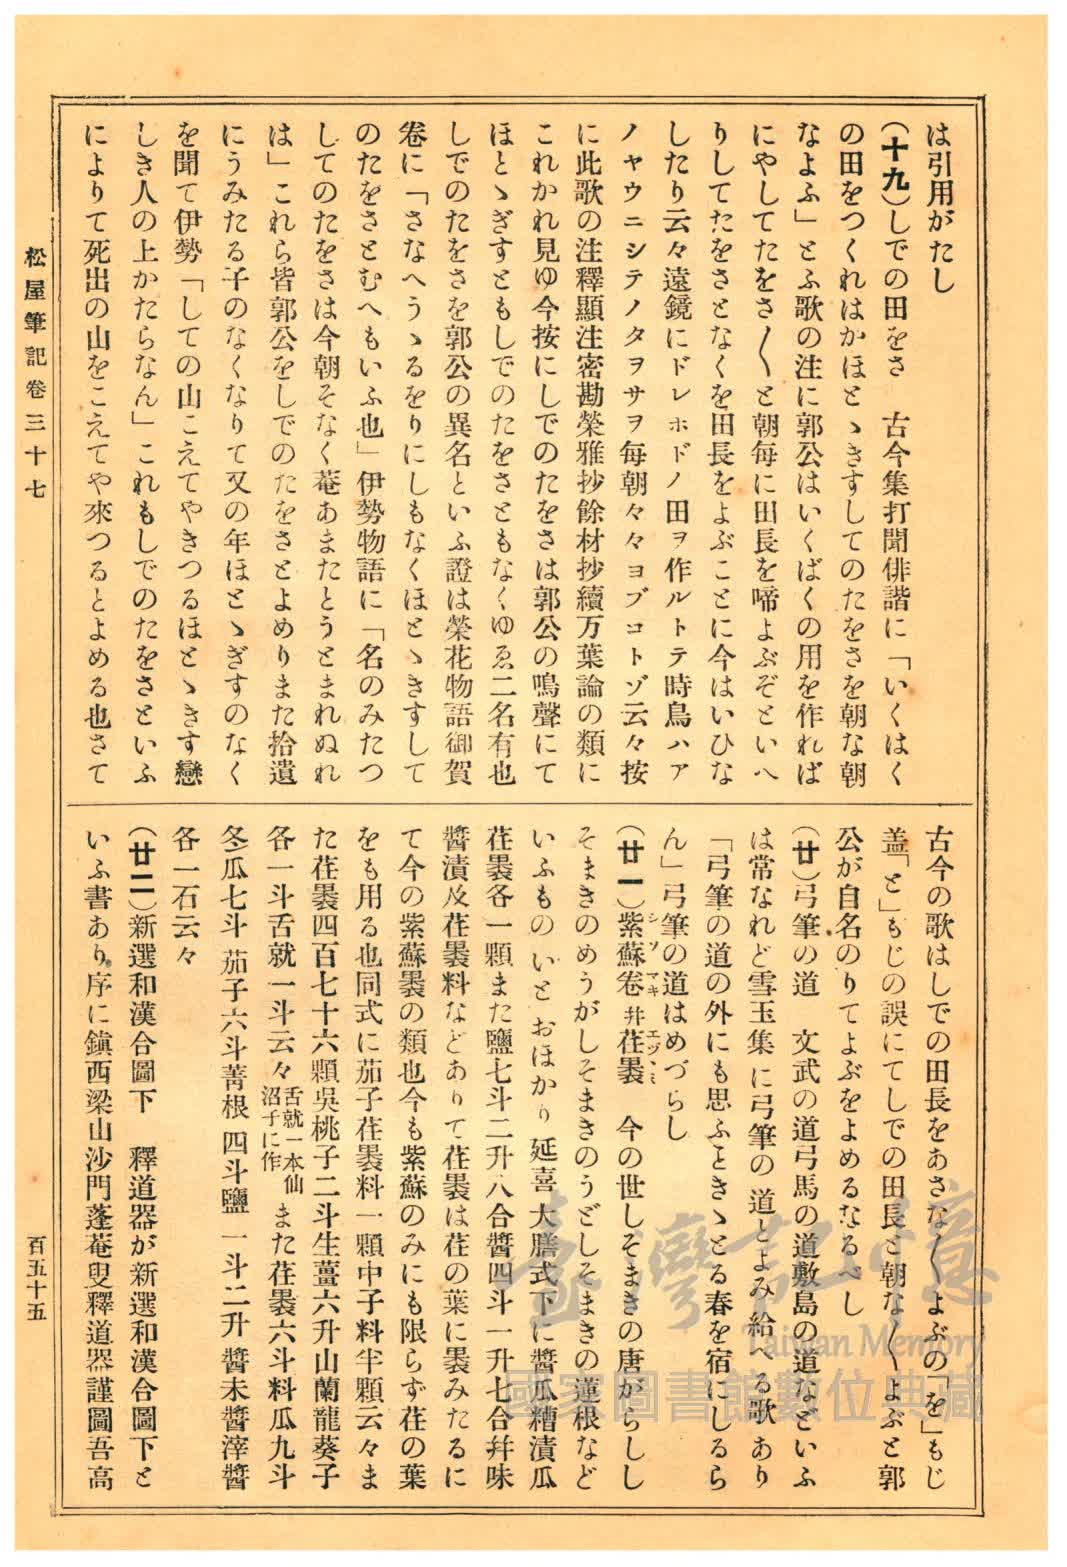 は引用がたし
(十九)しでの田をさ　古今集打聞俳諧に「いくはく
の田をつくれはかほとゝきすしてのたをさを朝な朝
なよふ」とふ歌の注に郭公はいくばくの用を作れば
にやしてたをさ〳〵と朝毎に田長を啼よぶぞといへ
りしてたをさとなくを田長をよぶことに今はいひな
したり云々遠鏡にドレホドノ田ヲ作ルトテ時鳥ハア
ノヤウニシテノタヲサヲ毎朝々々ヨブコトゾ云々按
に此歌の注釋顯注密勘榮雅抄餘材抄續万葉論の類に
これかれ見ゆ今按にしでのたをさは郭公の鳴聲にて
ほとゝぎすともしでのたをさともなくゆゑ二名有也
しでのたをさを郭公の異名といふ證は榮花物語御賀
卷に「さなへうゝるをりにしもなくほとゝきすして
のたをさとむへもいふ也」伊勢物語に「名のみたつ
してのたをさは今朝そなく菴あまたとうとまれぬれ
は」これら皆郭公をしでのたをさとよめりまた拾遺
にうみたる子のなくなりて又の年ほとゝぎすのなく
を聞て伊勢「しての山こえてやきつるほとゝきす戀
しき人の上かたらなん」これもしでのたをさといふ
によりて死出の山をこえてや來つるとよめる也さて
古今の歌はしでの田長をあさな〳〵よぶの「を」もじ
盖「と」もじの誤にてしでの田長と朝な〳〵よぶと郭
公が自名のりてよぶをよめるなるべし
(廿)弓筆の道　文武の道弓馬の道敷島の道などいふ
は常なれど雪玉集に弓筆の道とよみ給へる歌あり
「弓筆の道の外にも思ふときゝとる春を宿にしるら
ん」弓筆の道はめづらし
(廿一)紫蘇卷シソマキ幷荏裹エヅヽミ　今の世しそまきの唐がらしし
そまきのめうがしそまきのうどしそまきの蓮根など
いふものいとおほかり延喜大膳式下に醬瓜糟漬瓜
荏裹各一顆また鹽七斗二升八合醬四斗一升七合幷味
醬漬及荏裹料などありて荏裹は荏の葉に裹みたるに
て今の紫蘇裹の類也今も紫蘇のみにも限らず荏の葉
をも用る也同式に茄子荏裹料一顆中子料半顆云々ま
た荏裹四百七十六顆吳桃子二斗生薑六升山蘭龍葵子
各一斗舌就一斗云々舌就一本仙沼子に作また荏裹六斗料瓜九斗
冬瓜七斗茄子六斗菁根四斗鹽一斗二升醬未醬滓醬
各一石云々
(廿二)新選和漢合圖下　釋道器が新選和漢合圖下と
いふ書あり序に鎭西梁山沙門蓬菴叟釋道器謹圖吾高
松屋筆記卷三十七
百五十五
臺灣記憶
Taiwan Memory
國家圖書館數位典藏